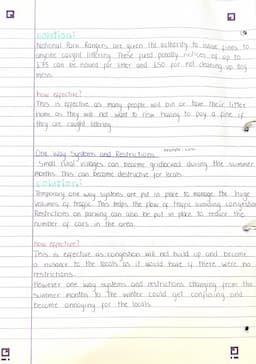 solution!
National Park Rangers are given the authority to issue fines to
anyone caught littering. These fixed penalty notices of up to
£75 can be issued for litter and £50 for not cleaning up dog
mess.
how effective?
This is effective as many people will bin or take their litter
home as they will not want to risk having to pay a fine if
they are caught littering.
One Way Systems and Restrictions
Small rural villages can become gridlocked during the summer
months. This can become destructive for locals.
solution!
Temporary one way systems are put in place to manage the huge
volumes of traffic. This helps the flow of traffic avoiding congestion
Restrictions on parking can also be put in place to reduce the
number of cars in the area.
how effective?
This is effective as congestion will not build up and become
a nuisance to the locals as it would have if there were no
restrictions.
However one way systems and restrictions changing from the
summer months to the winter could get confusing and
become annoying for the locals.